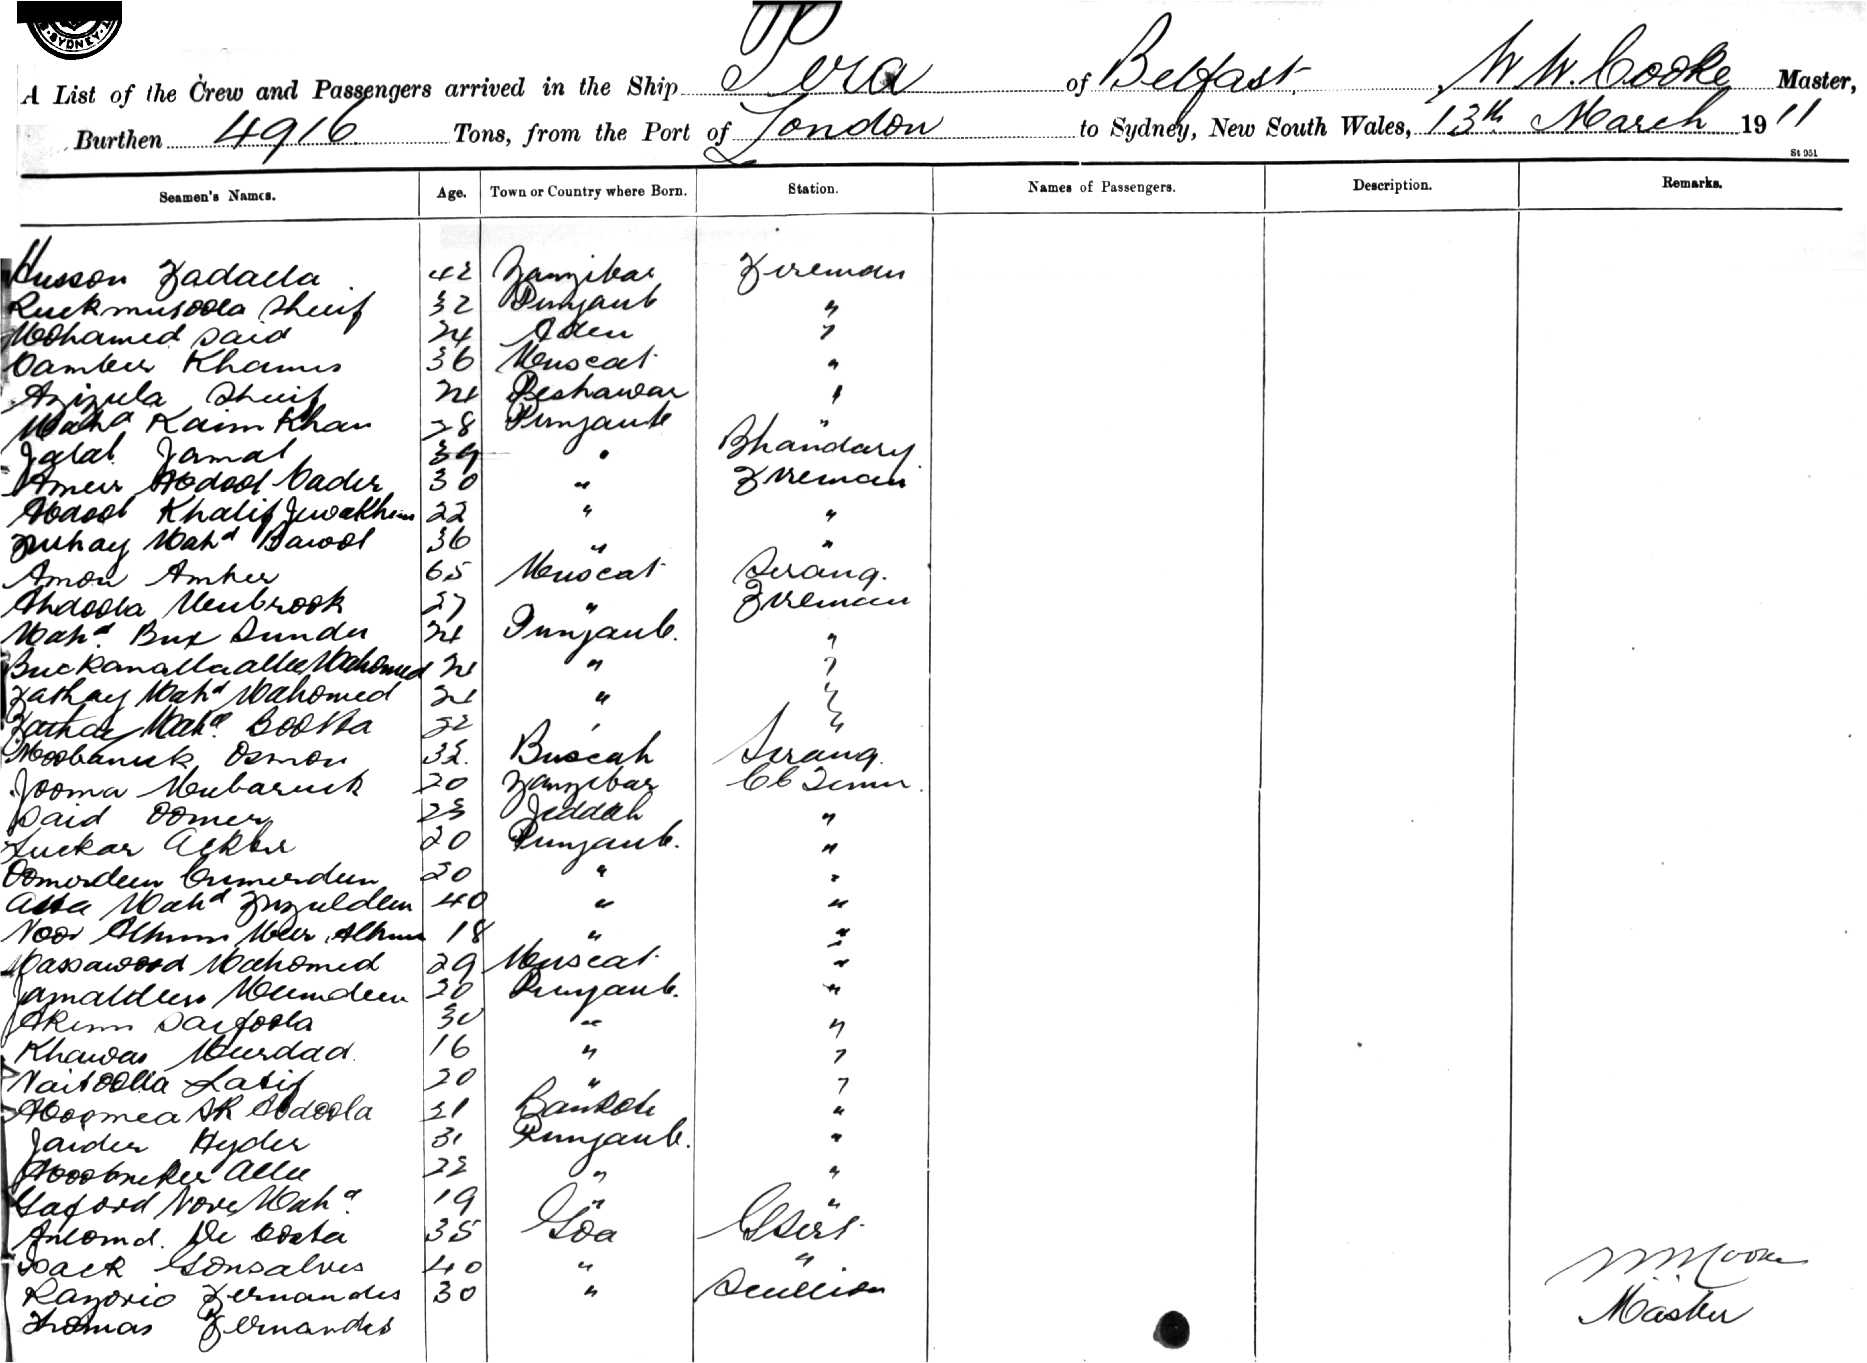 SYDNEY
A List of the Crew and Passengers arrived in the Ship Pera of Belfast, W W. Cooke Master,
Burthen 4916 Tons, from the Port of London to Sydney, New South Wales, 13th March 1911
St 951
Seamen's Names. Age. Town or Country where Born. Station. Names of Passengers. Description. Remarks.
Husson Fadalla 42 Zanzibar Fireman
Ruckmusoola Sheif 32 Punjaub "
Mohamed Said 24 Aden "
Cambeer Khamis 36 Muscat "
Azizula Sheif 24 Peshawar "
Mahd Kaim Khan 28 Punjaub "
Jalal Jamal 39 " Bhandary
Ameer Abdool Cader 30 " Fireman
Abdool Khalif 22 " "
Mahd Dawood 36 " "
Amon Amber 65 Muscat Serang.
Abdoola Mubrook 27 " Fireman
Mahd Bux Sunder 24 Punjaub. "
Mahomed 24 " "
Fathay Mahd Mahomed 24 " "
Mahd Bootta 22 " "
Moobaruck Osmon 32. Buscah Serang.
Jooma Mubaruck 20 Zanzibar
Said Oomer 23 Jeddah "
Suckar Ackber 20 Punjaub. "
Oomerdeen Cumerdeen 20 " "
Atta Mahd 40 " "
Noor Allum Meer Allum 18 " "
Massawood Mahomed 29 Muscat "
Jamaldeen 20 Punjaub. "
Akim Saifoola 30 " "
Khawas Meerdad. 16 " "
Latif 20 " "
Sk Abdoola 21 "
Jaider Hyder 31 Punjaub. "
Aboobucker Allee 22 " "
Gafoord Noor Mahd. 19 " "
De Costa 35 Goa
Isack Gonsalves 40 " "
Fernandes 30 " Scullion
Thomas Fernandes
W W Cooke
Master